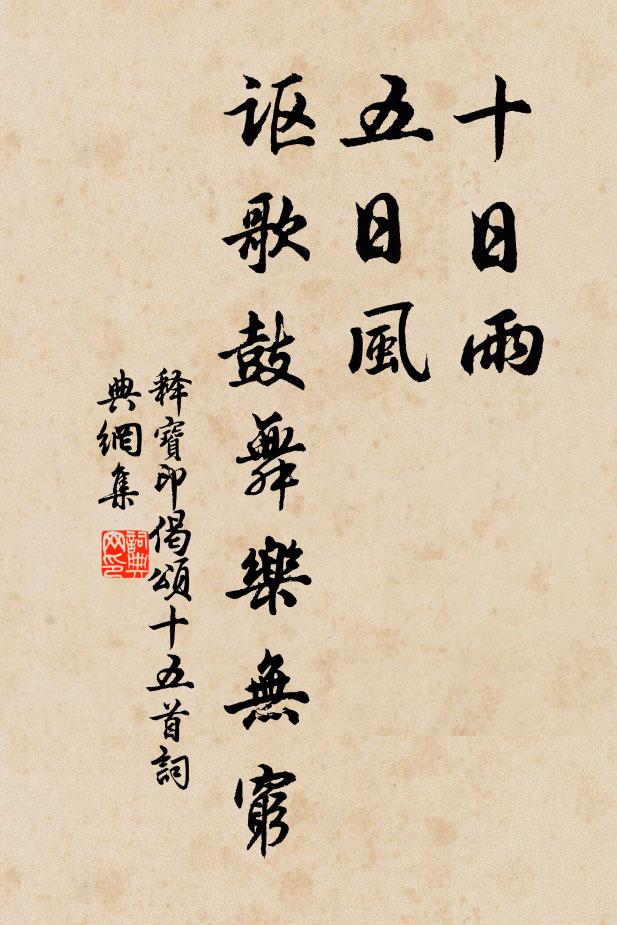 十日雨
五日風
謳歌鼓舞樂無窮
釋寶印偈頌十五首詞
典網集
詞典
网印